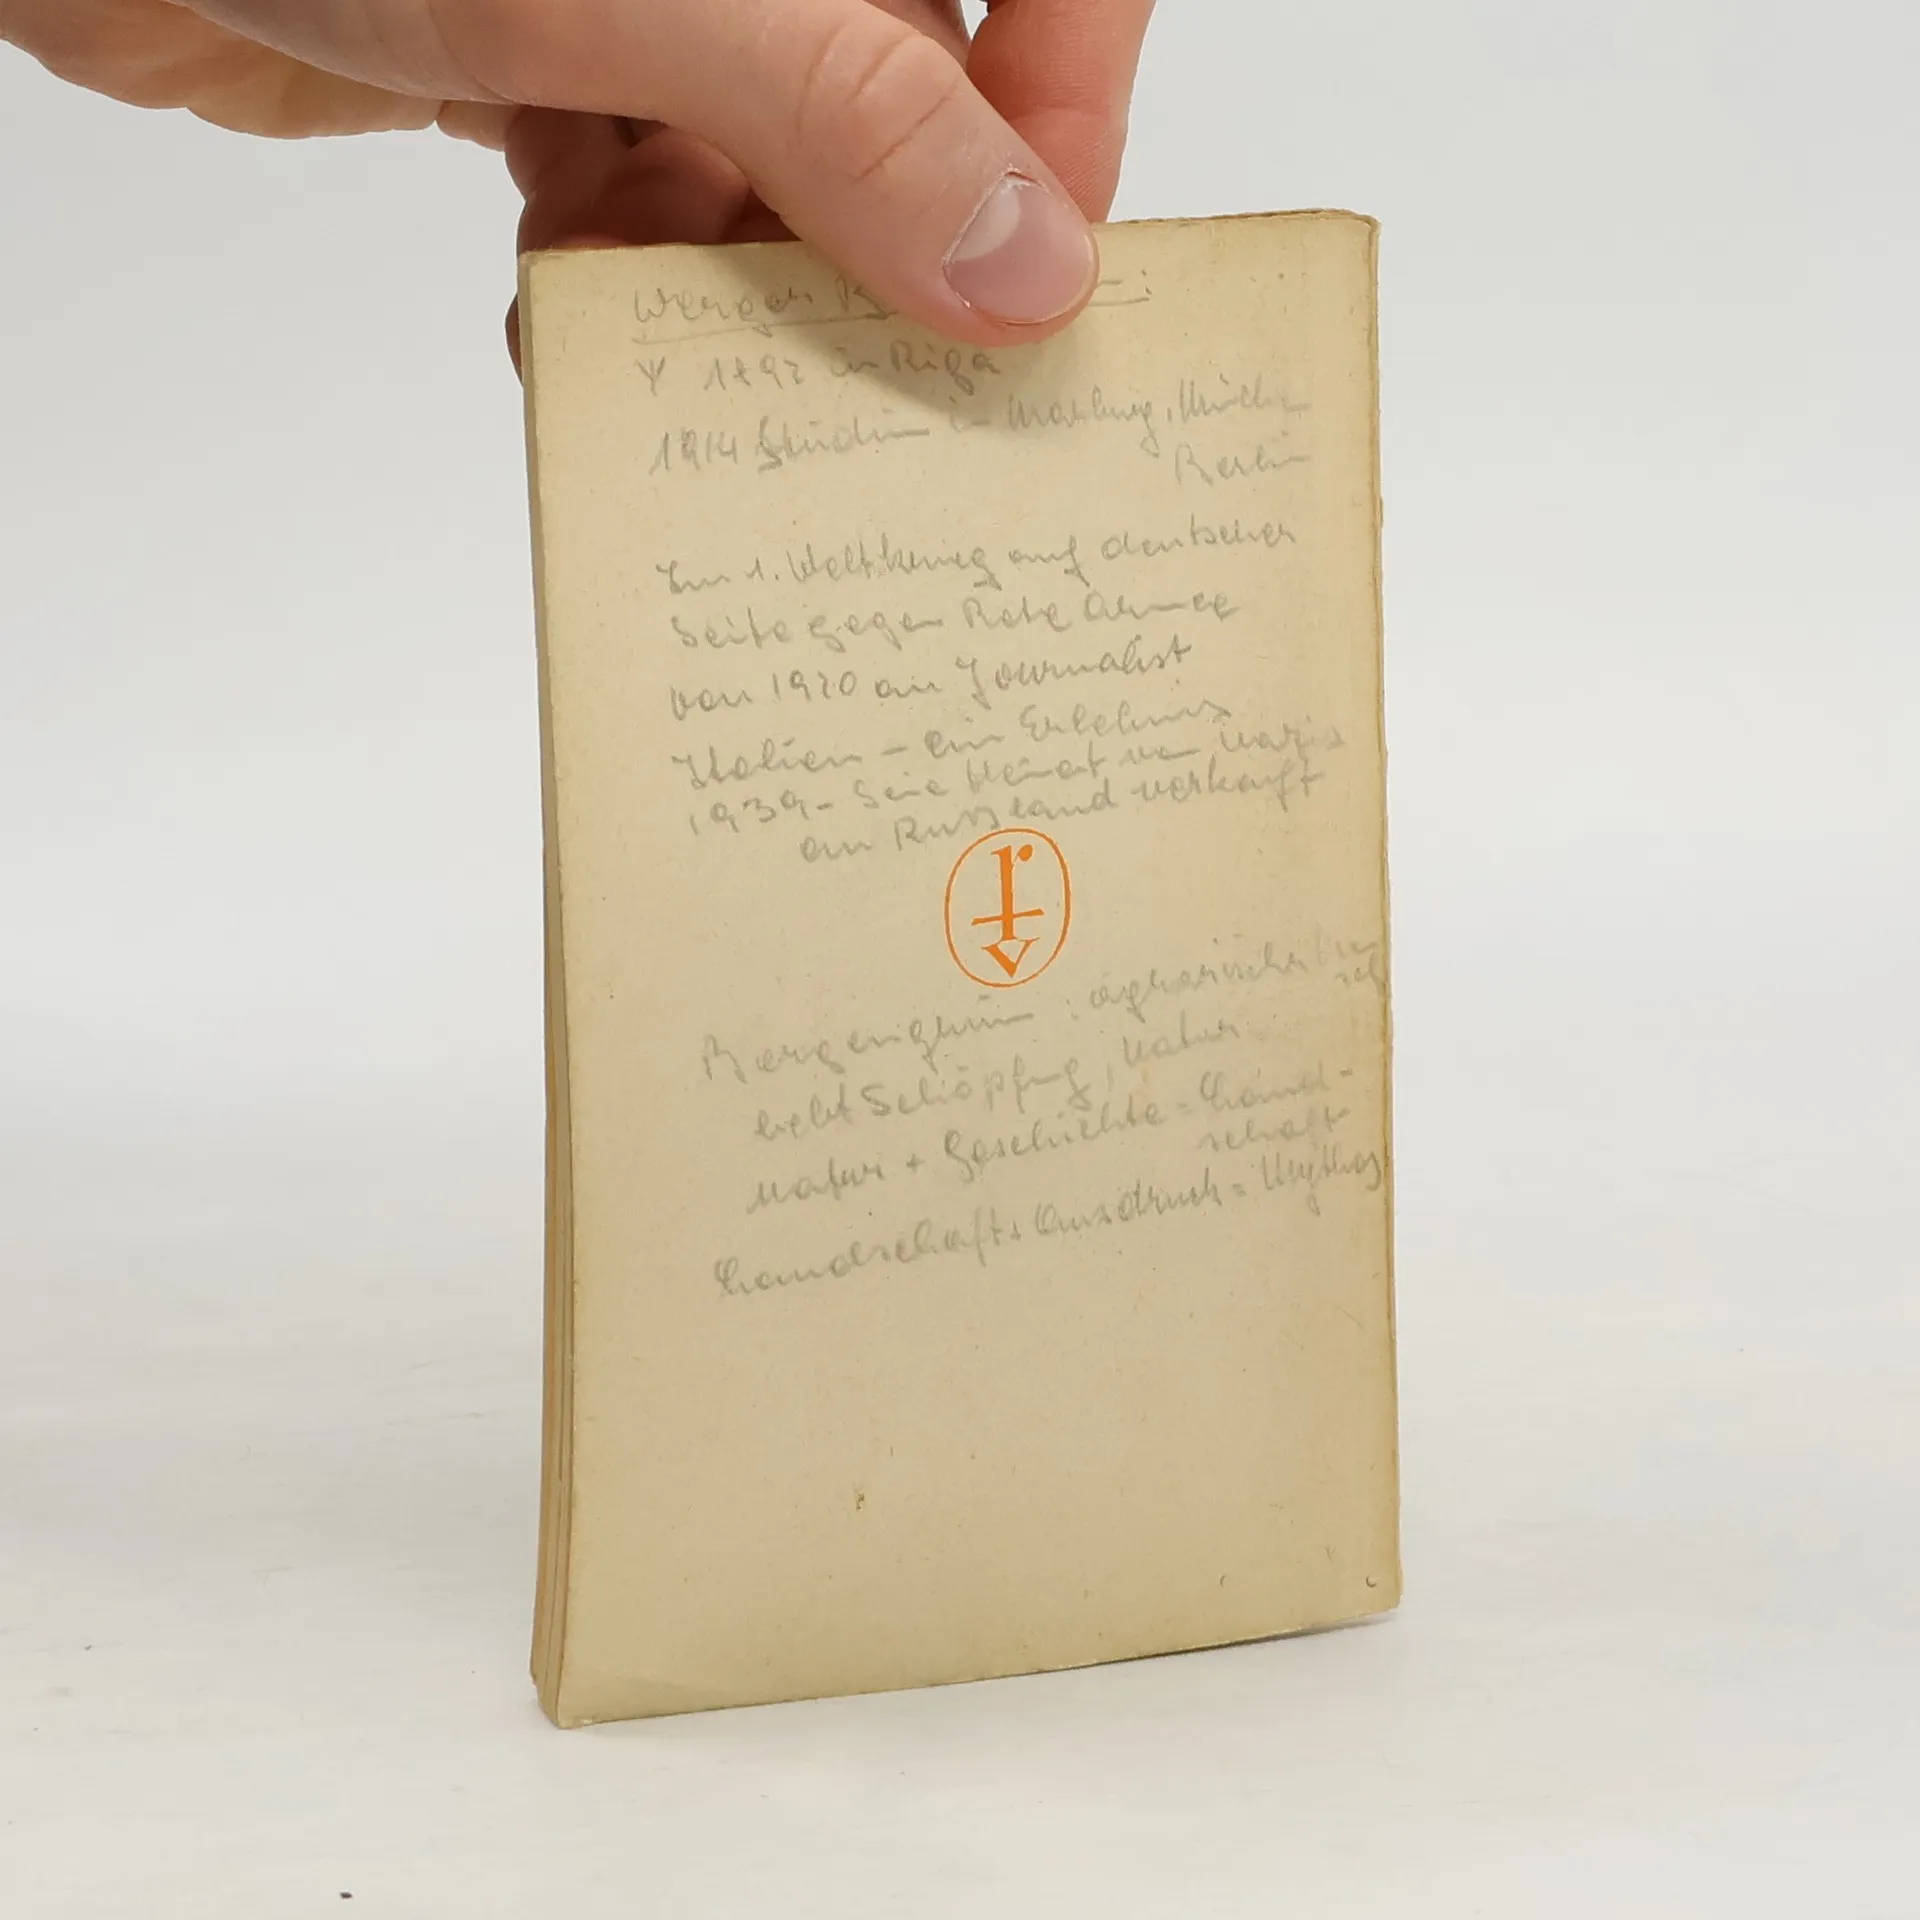 Werger B
1892 in Riga
1914 Studium in Marburg, München
Berlin
Im 1. Weltkrieg auf deutscher
Seite gegen Rote Armee
von 1920 an Journalist
Italien - ein Erlebnis
1939 - Seine Heimat von Nazis
an Russland verkauft
rv
Bergengruen : agrarischer
liebt Schöpfung, Natur
Natur + Geschichte = Land-
schaft
Landschaft + Ausdruck = Mythos